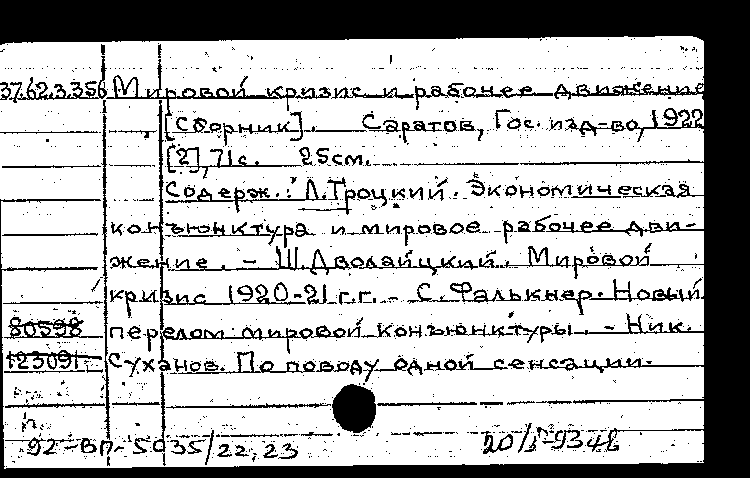 37.62.3.356 Мировой кризис и рабочее движение
[Сборник]. Саратов, Гос. изд-во, 1922
[2], 71с. 25см.
Содерж.: Л.Троцкий. Экономическая
конъюнктура и мировое рабочее дви-
жение. - Ш.Дволайцкий. Мировой
кризис 1920-21 г.г. - С. Фалькнер. Новый
80598 перелом мировой конъюнктуры. - Ник.
123091 Суханов. По поводу одной сенсации.
92-ВП-5035/22,23